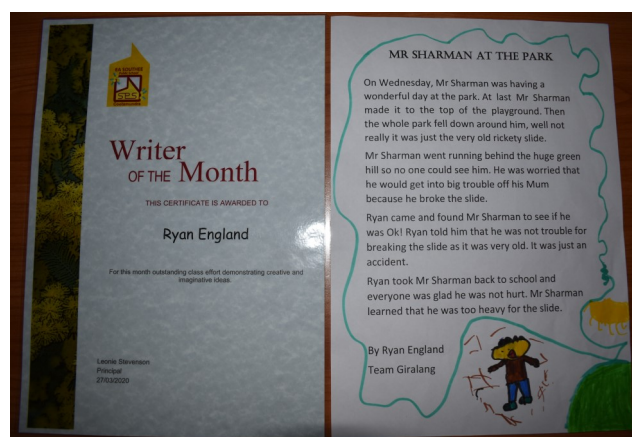 SPS
Writer
OF THE Month
THIS CERTIFICATE IS AWARDED TO
Ryan England
For this month outstanding class effort demonstrating creative and
imaginative ideas.
Leonie Stevenson
Principal
27/03/2020
MR SHARMAN AT THE PARK
On Wednesday, Mr Sharman was having a
wonderful day at the park. At last Mr Sharman
made it to the top of the playground. Then
the whole park fell down around him, well not
really it was just the very old rickety slide.
Mr Sharman went running behind the huge green
hill so no one could see him. He was worried that
he would get into big trouble off his Mum
because he broke the slide.
Ryan came and found Mr Sharman to see if he
was Ok! Ryan told him that he was not trouble for
breaking the slide as it was very old. It was just an
accident.
Ryan took Mr Sharman back to school and
everyone was glad he was not hurt. Mr Sharman
learned that he was too heavy for the slide.
By Ryan England
Team Giralang